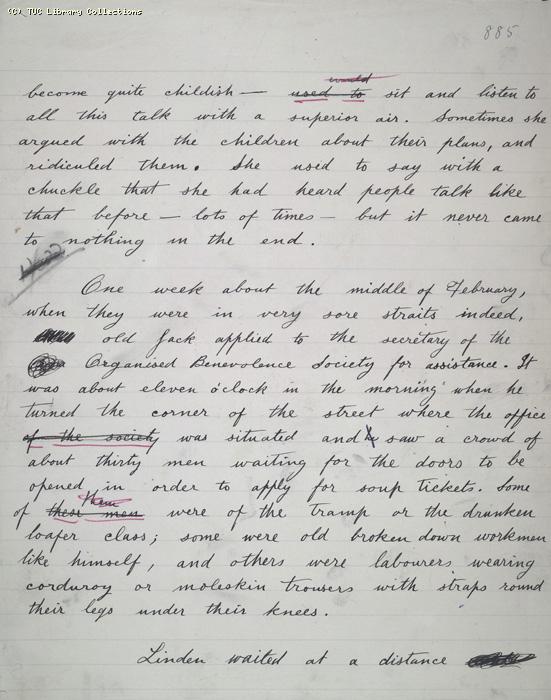 (C) TUC Library Collections
885
would
become quite childish — used to sit and listen to
all this talk with a superior air. Sometimes she
argued with the children about their plans, and
ridiculed them. She used to say with a
chuckle that she had heard people talk like
that before — lots of times — but it never came
to nothing in the end.
One week about the middle of February,
when they were in very sore straits indeed,
old Jack applied to the secretary of the
Organised Benevolence Society for assistance. It
was about eleven o'clock in the morning when he
turned the corner of the street where the office
of the society was situated and saw a crowd of
about thirty men waiting for the doors to be
opened in order to apply for soup tickets. Some
them
of these men were of the tramp or the drunken
loafer class; some were old broken down workmen
like himself, and others were labourers wearing
corduroy or moleskin trousers with straps round
their legs under their knees.
Linden waited at a distance